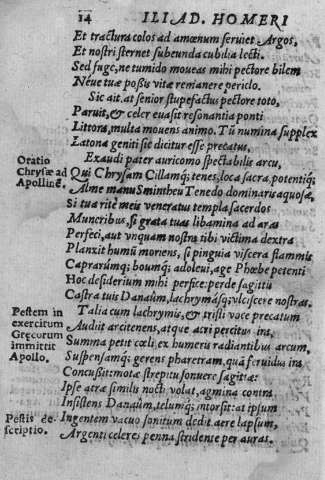 14 ILIAD. HOMERI
Et tractura colos ad amœnum seruiet Argos,
Et nostri sternet subeunda cubilia lecti.
Sed fuge, ne tumido moueas mihi pectore bilem
Néue tuæ possis vitæ remanere periclo.
Sic ait. at senior stupefactus pectore toto,
Paruit, & celer euasit resonantia ponti
Littora, multa mouens animo. Tū numina supplex
Latona geniti sic dicitur esse precatus.
Exaudi pater auricomo spectabilis arcu,
Oratio
Chrysæ ad
Apollinē.
Qui Chrysam Cillamq; tenes, loca sacra, potentiq;
Alme manu Smintheu Tenedo dominaris aquosæ,
Si tua ritè meis veneratus templa sacerdos
Muneribus, si grata tuas libamina ad aras
Perfeci, aut vnquam nostra tibi victima dextra
Planxit humū moriens, si pinguia viscera flammis
Caprarūmq; boumq; adoleui, age Phœbe petenti
Hoc desiderium mihi perfice: perde sagittis
Castra tuis Danaûm, lachrymásq; vlciscere nostras.
Pestem in
exercitum
Græcorum
immittit
Apollo.
Talia cum lachrymis, & tristi voce precatum
Audit arcitenens, atque acri percitus ira,
Summa petit cœli, ex humeris radiantibus arcum,
Suspensámq; gerens pharetram, quâ feruidus ira
Concussit: motæ strepitu sonuere sagittæ:
Ipse atræ similis nocti volat, agmina contra
Insistens Danaûm, telumq; intorsit: at ipsum
Pestis de-
scriptio.
Ingentem vacuo sonitum dedit aere lapsum,
Argenti celeres penna stridente per auras.